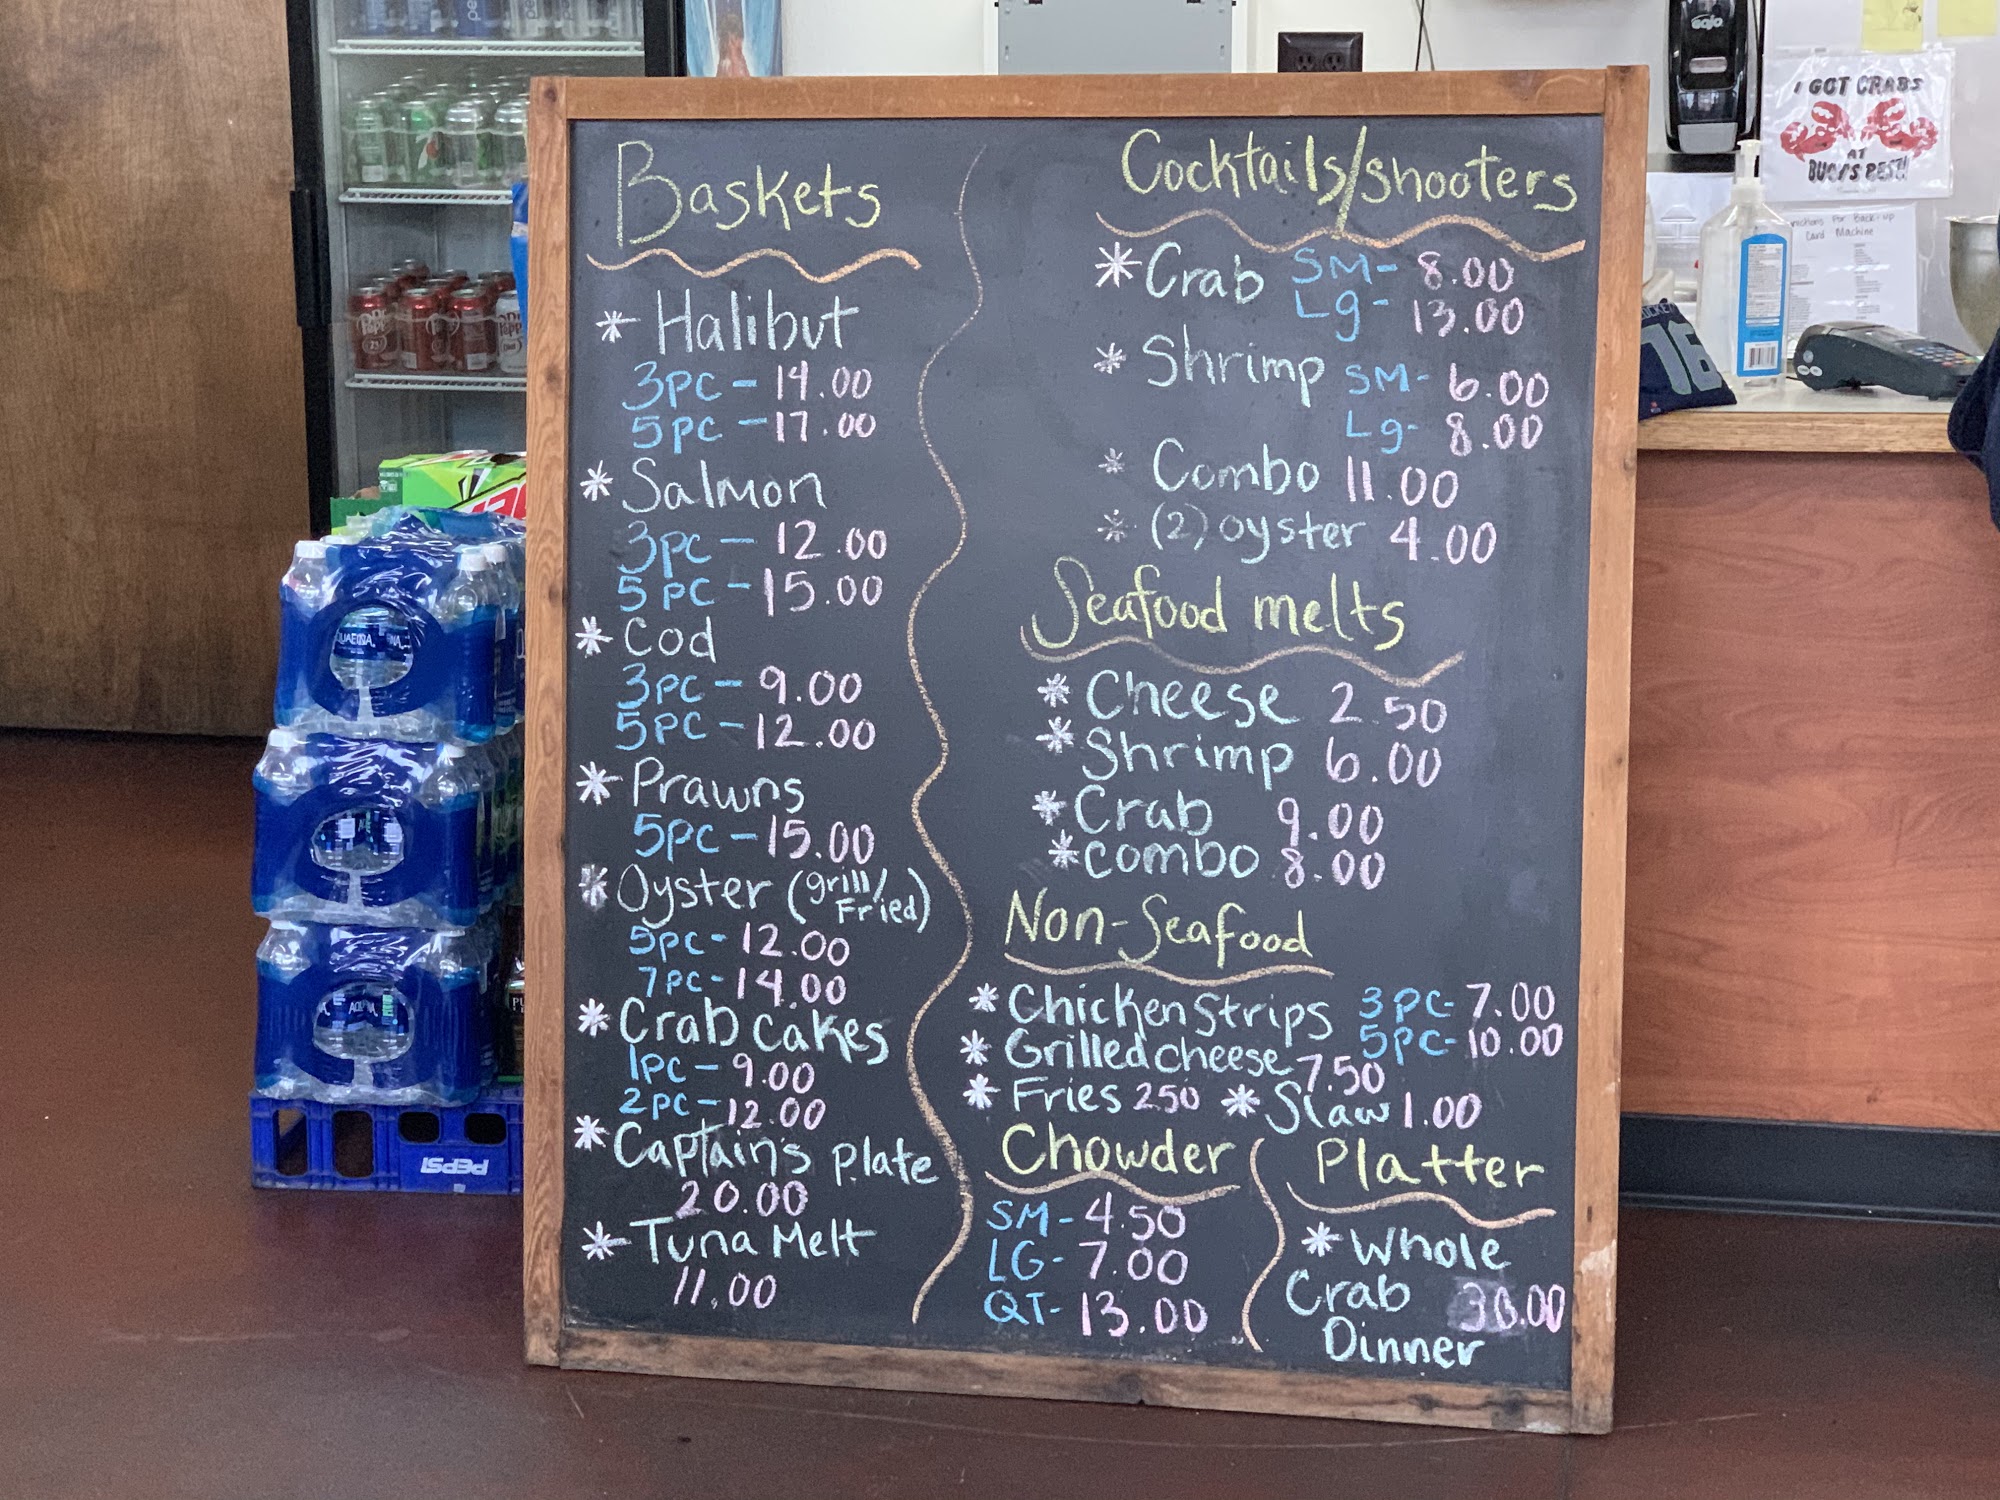 Baskets
* Halibut
3pc - 14.00
5pc - 17.00
* Salmon
3pc - 12.00
5pc - 15.00
* Cod
3pc - 9.00
5pc - 12.00
* Prawns
5pc - 15.00
* Oyster (grill/Fried)
5pc - 12.00
7pc - 14.00
* Crab Cakes
1pc - 9.00
2pc - 12.00
* Captain's Plate
20.00
* Tuna Melt
11.00
Cocktails/shooters
* Crab SM - 8.00
Lg - 13.00
* Shrimp SM - 6.00
Lg - 8.00
* Combo 11.00
* (2) oyster 4.00
Seafood melts
* Cheese 2.50
* Shrimp 6.00
* Crab 9.00
* combo 8.00
Non-Seafood
* Chicken Strips 3pc - 7.00
5pc - 10.00
* Grilled cheese 7.50
* Fries 250 * Slaw 1.00
Chowder
SM - 4.50
LG - 7.00
QT - 13.00
Platter
* Whole
Crab 30.00
Dinner
I GOT CRABS
AT
Card Machine
GOJO
PEPSI